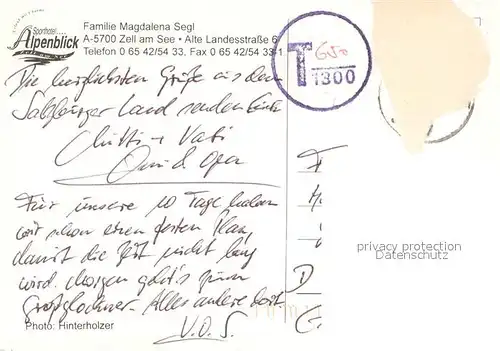 Sporthotel....
Alpenblick
Familie Magdalena Segl
A-5700 Zell am See • Alte Landesstraße 6
Telefon 0 65 42/54 33, Fax 0 65 42/54 33-1
T 650
1300
Die herzlichsten Grüße aus dem
Salzburger Land senden Euch
Mutti + Vati
Omi & Opa
Für unsere 10 Tage haben
wir schon einen festen Plan,
damit die Zeit nicht lang
wird. Morgen geht's zum
Großglockner. Alles andere dort
V.O.S.
Photo: Hinterholzer
privacy protection
Datenschutz
D